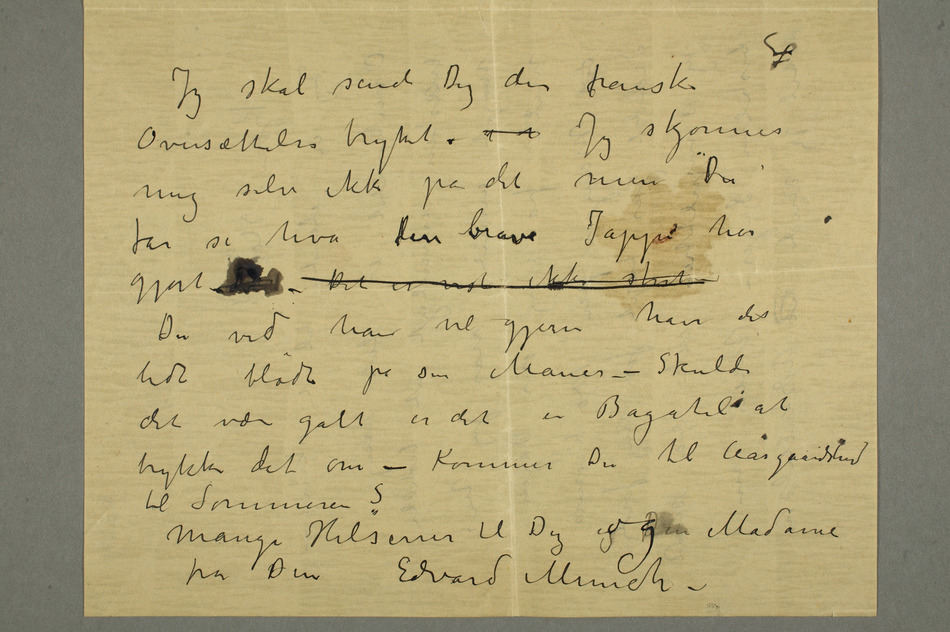 Jeg skal sende Dig den franske
Oversættelse trykt. Jeg skjønner
mig selv ikke på det men Du
får se hva Den brave Jappe har
gjort – Det er vist ikke
Du ved han vil gjerne have det
lidt blødt på sin Maner – Skulde
det være galt er det en Bagatel at
trykke det om – Kommer Du til Aasgaardstrand
til Sommeren
Mange Hilsener til Dig og Madame
fra Din Edvard Munch –